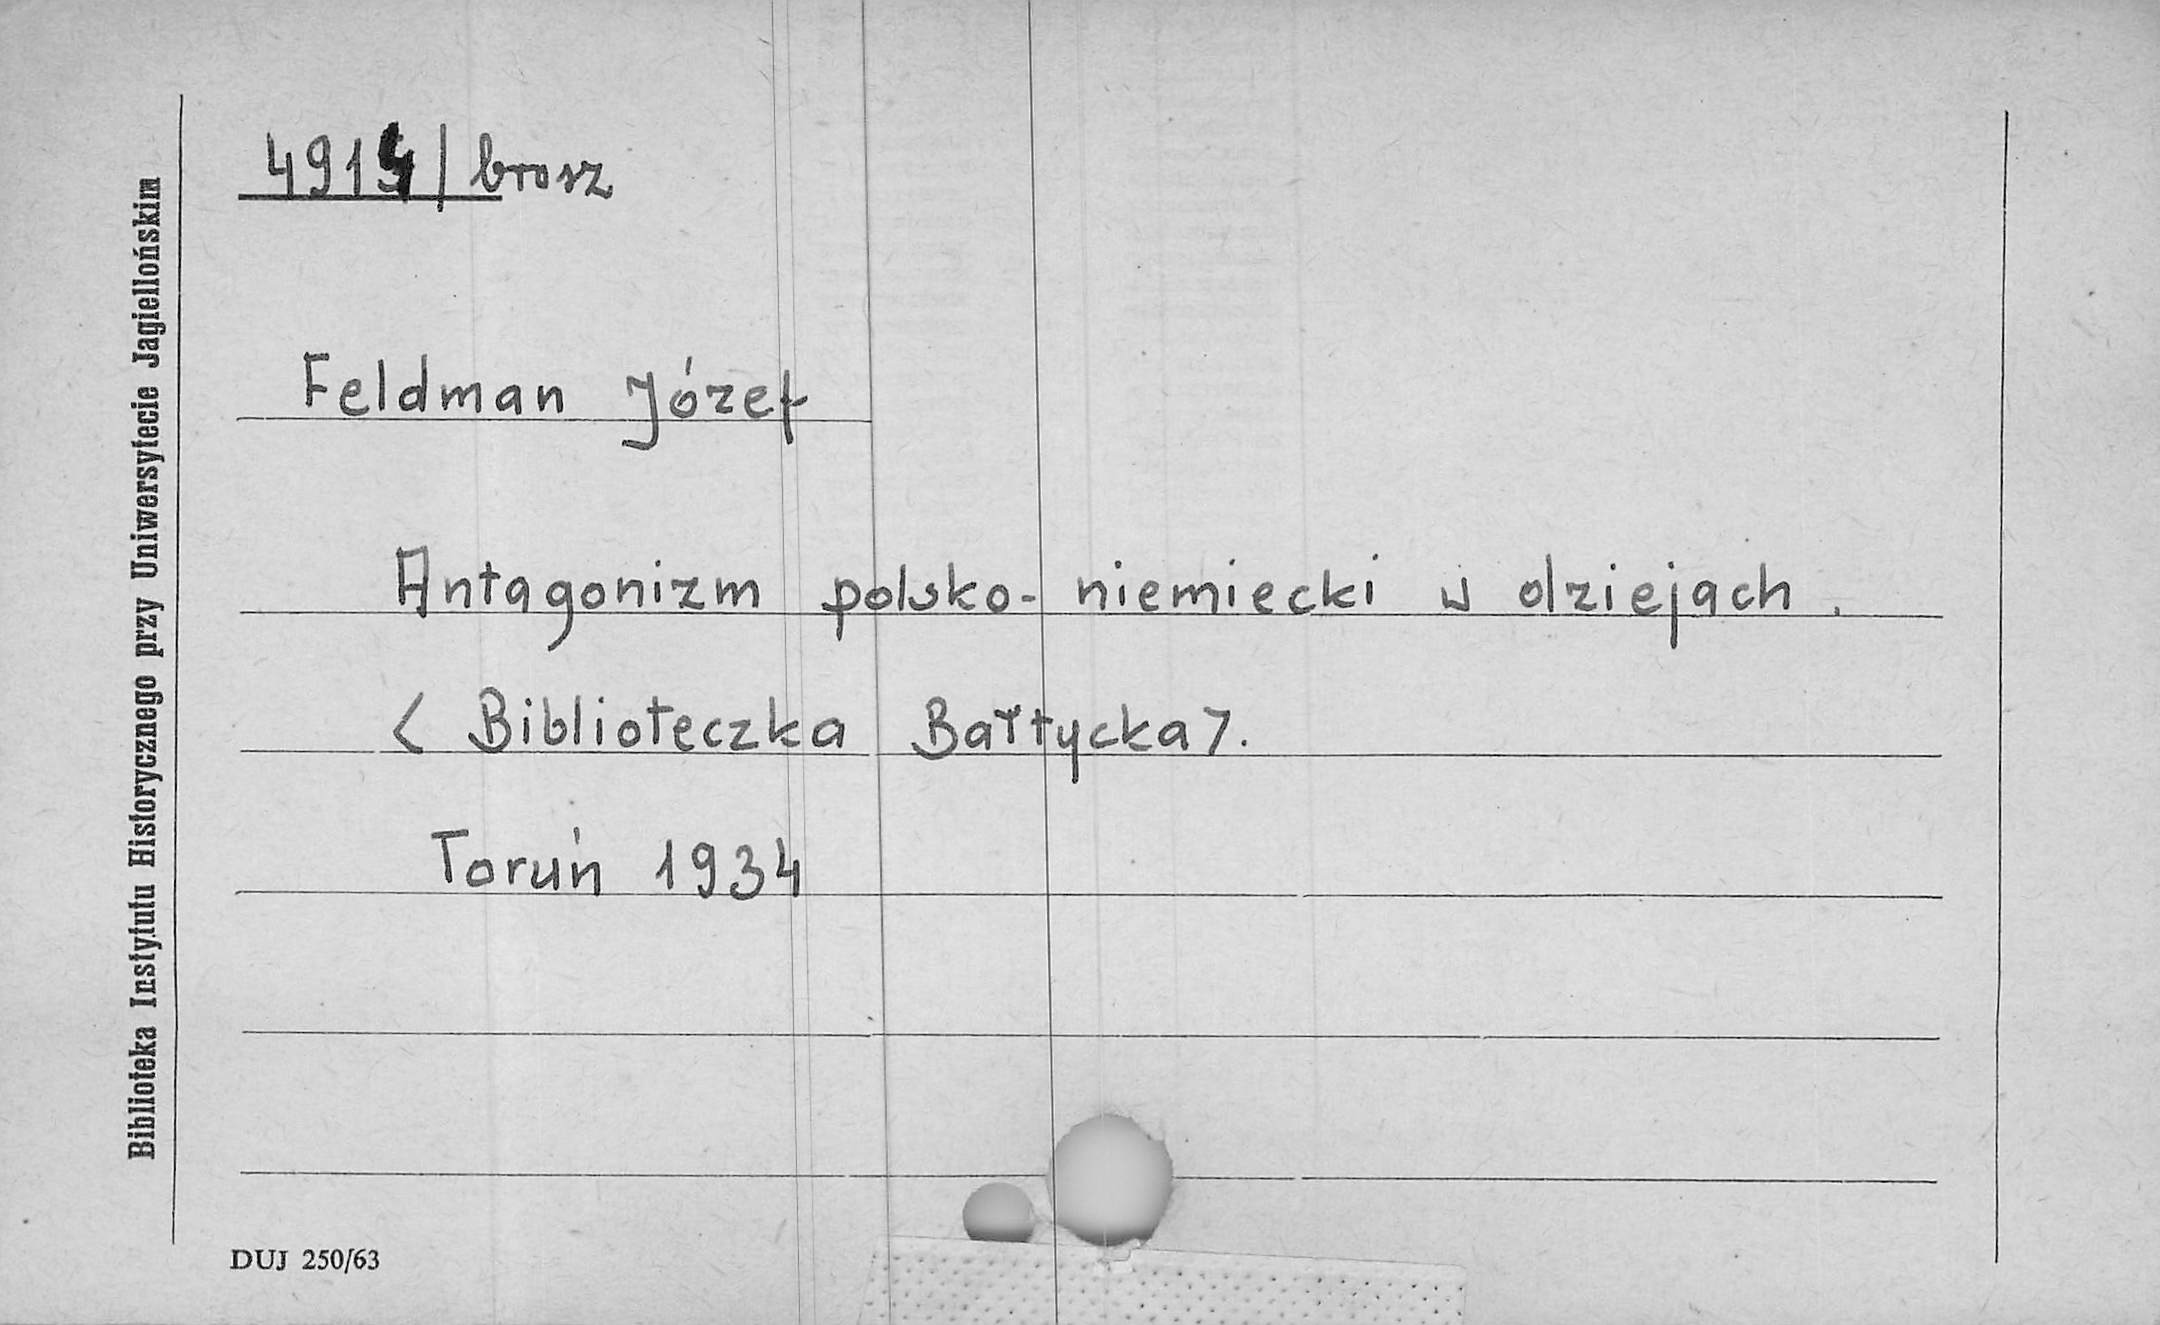 4914/brosz
Feldman Józef
Antagonizm polsko-niemiecki w dziejach.
<Biblioteczka Bałtycka>.
Toruń 1934
Biblioteka Instytutu Historycznego przy Uniwersytecie Jagiellońskim
DUJ 250/63